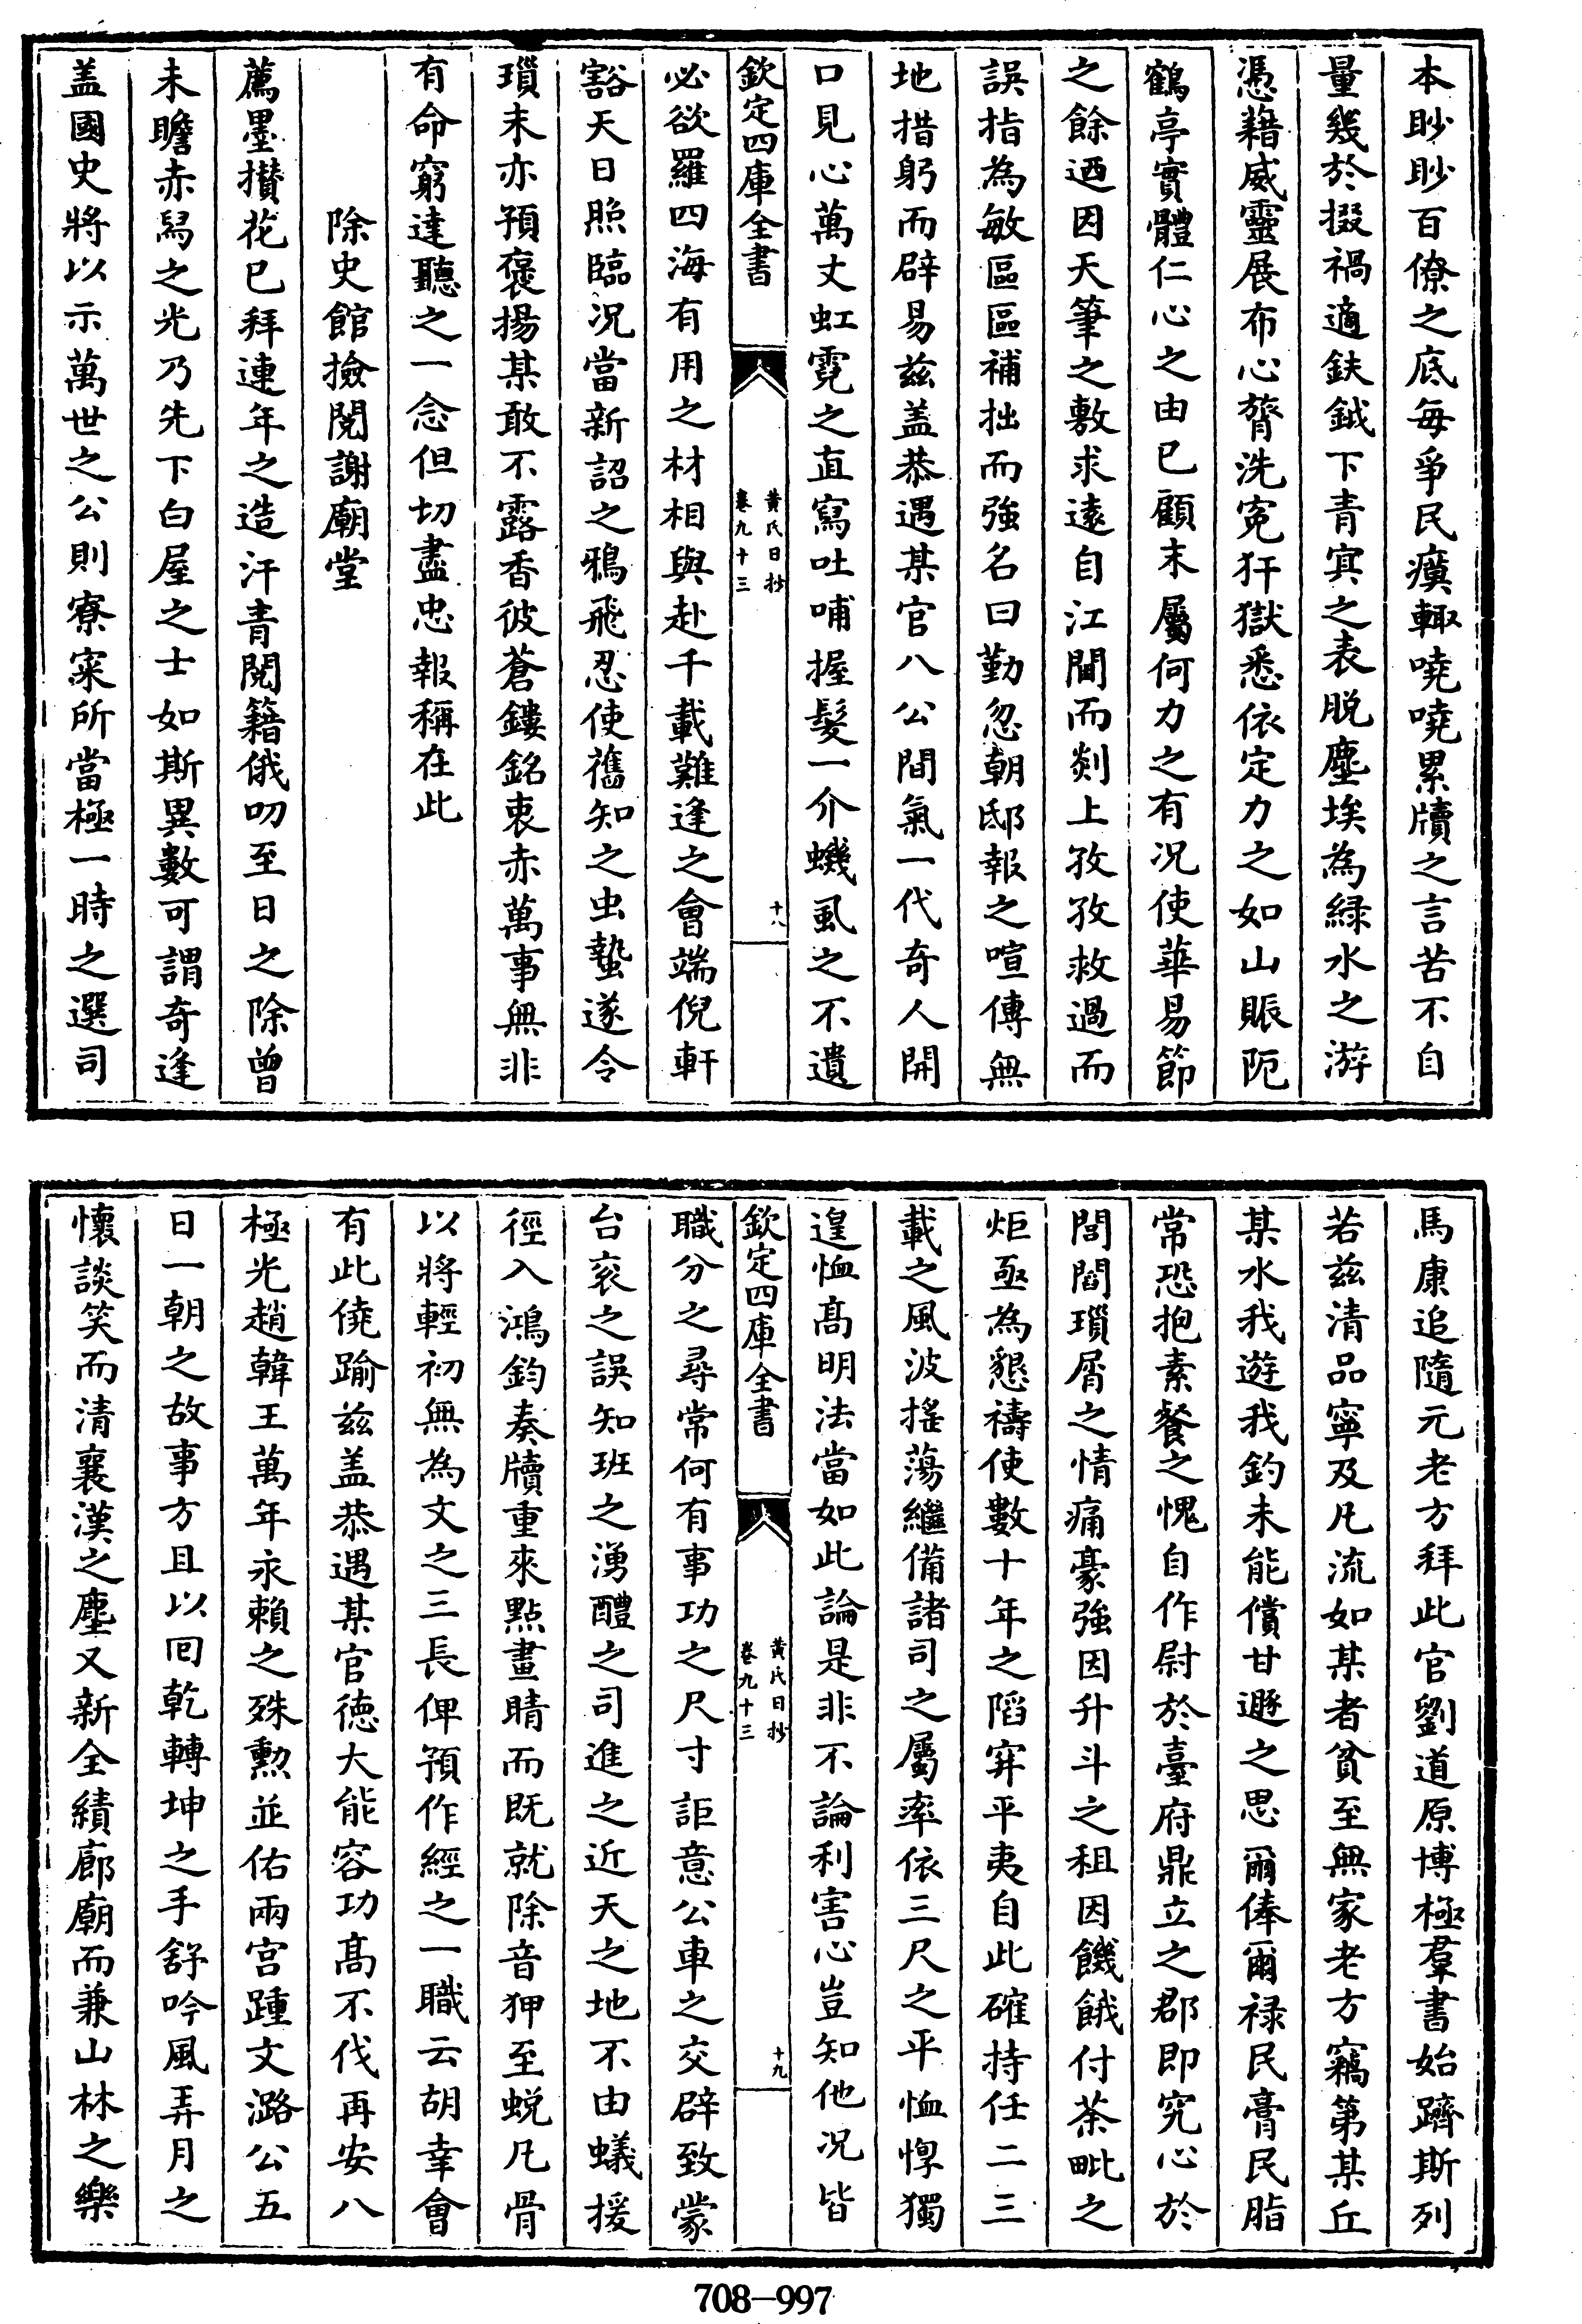 本眇眇百僚之底每爭民瘼輙嘵嘵累牘之言苦不自
量幾於掇禍適鈇鉞下青㝠之表脱塵埃為緑水之游
憑藉威靈展布心膂洗寃犴獄悉依定力之如山賑阨
鶴亭實體仁心之由已顧末屬何力之有况使華易節
之餘迺因天筆之敷求遠自江閫而剡上孜孜救過而
誤指為敏區區補拙而強名曰勤忽朝邸報之喧傳無
地措躬而辟易兹盖恭遇某官八公間氣一代奇人開
口見心萬丈虹霓之直寫吐哺握髮一介蟣虱之不遺
欽定四庫全書
黄氏日抄
卷九十三
十八
必欲羅四海有用之材相與赴千載難逢之會端倪軒
豁天日照臨况當新詔之鴉飛忍使舊知之虫蟄遂令
瑣末亦預褒揚某敢不露香彼蒼鏤銘衷赤萬事無非
有命窮達聽之一念但切盡忠報稱在此
除史館撿閲謝廟堂
薦墨攢花已拜連年之造汗青閲籍俄叨至日之除曾
未瞻赤舄之光乃先下白屋之士如斯異數可謂奇逢
盖國史將以示萬世之公則寮寀所當極一時之選司
馬康追隨元老方拜此官劉道原博極羣書始躋斯列
若兹清品寧及凡流如某者貧至無家老方竊第某丘
某水我遊我釣未能償甘遯之思爾俸爾禄民膏民脂
常恐抱素餐之愧自作尉於臺府鼎立之郡即究心於
閭閻瑣屑之情痛豪強因升斗之租因饑餓付荼毗之
炬亟為懇禱使數十年之䧟穽平夷自此確持任二三
載之風波摇蕩繼備諸司之屬率依三尺之平恤惸獨
遑恤髙明法當如此論是非不論利害心豈知他况皆
欽定四庫全書
黄氏日抄
卷九十三
十九
職分之尋常何有事功之尺寸詎意公車之交辟致蒙
台衮之誤知班之湧醴之司進之近天之地不由蟻援
徑入鴻鈞奏牘重來點畫睛而既就除音狎至蜕凡骨
以將輕初無為文之三長俾預作經之一職云胡幸會
有此僥踰兹盖恭遇某官德大能容功髙不伐再安八
極光趙韓王萬年永賴之殊勲並佑兩宫踵文潞公五
日一朝之故事方且以囘乾轉坤之手舒吟風弄月之
懷談笑而清襄漢之塵又新全績廊廟而兼山林之樂
708—997